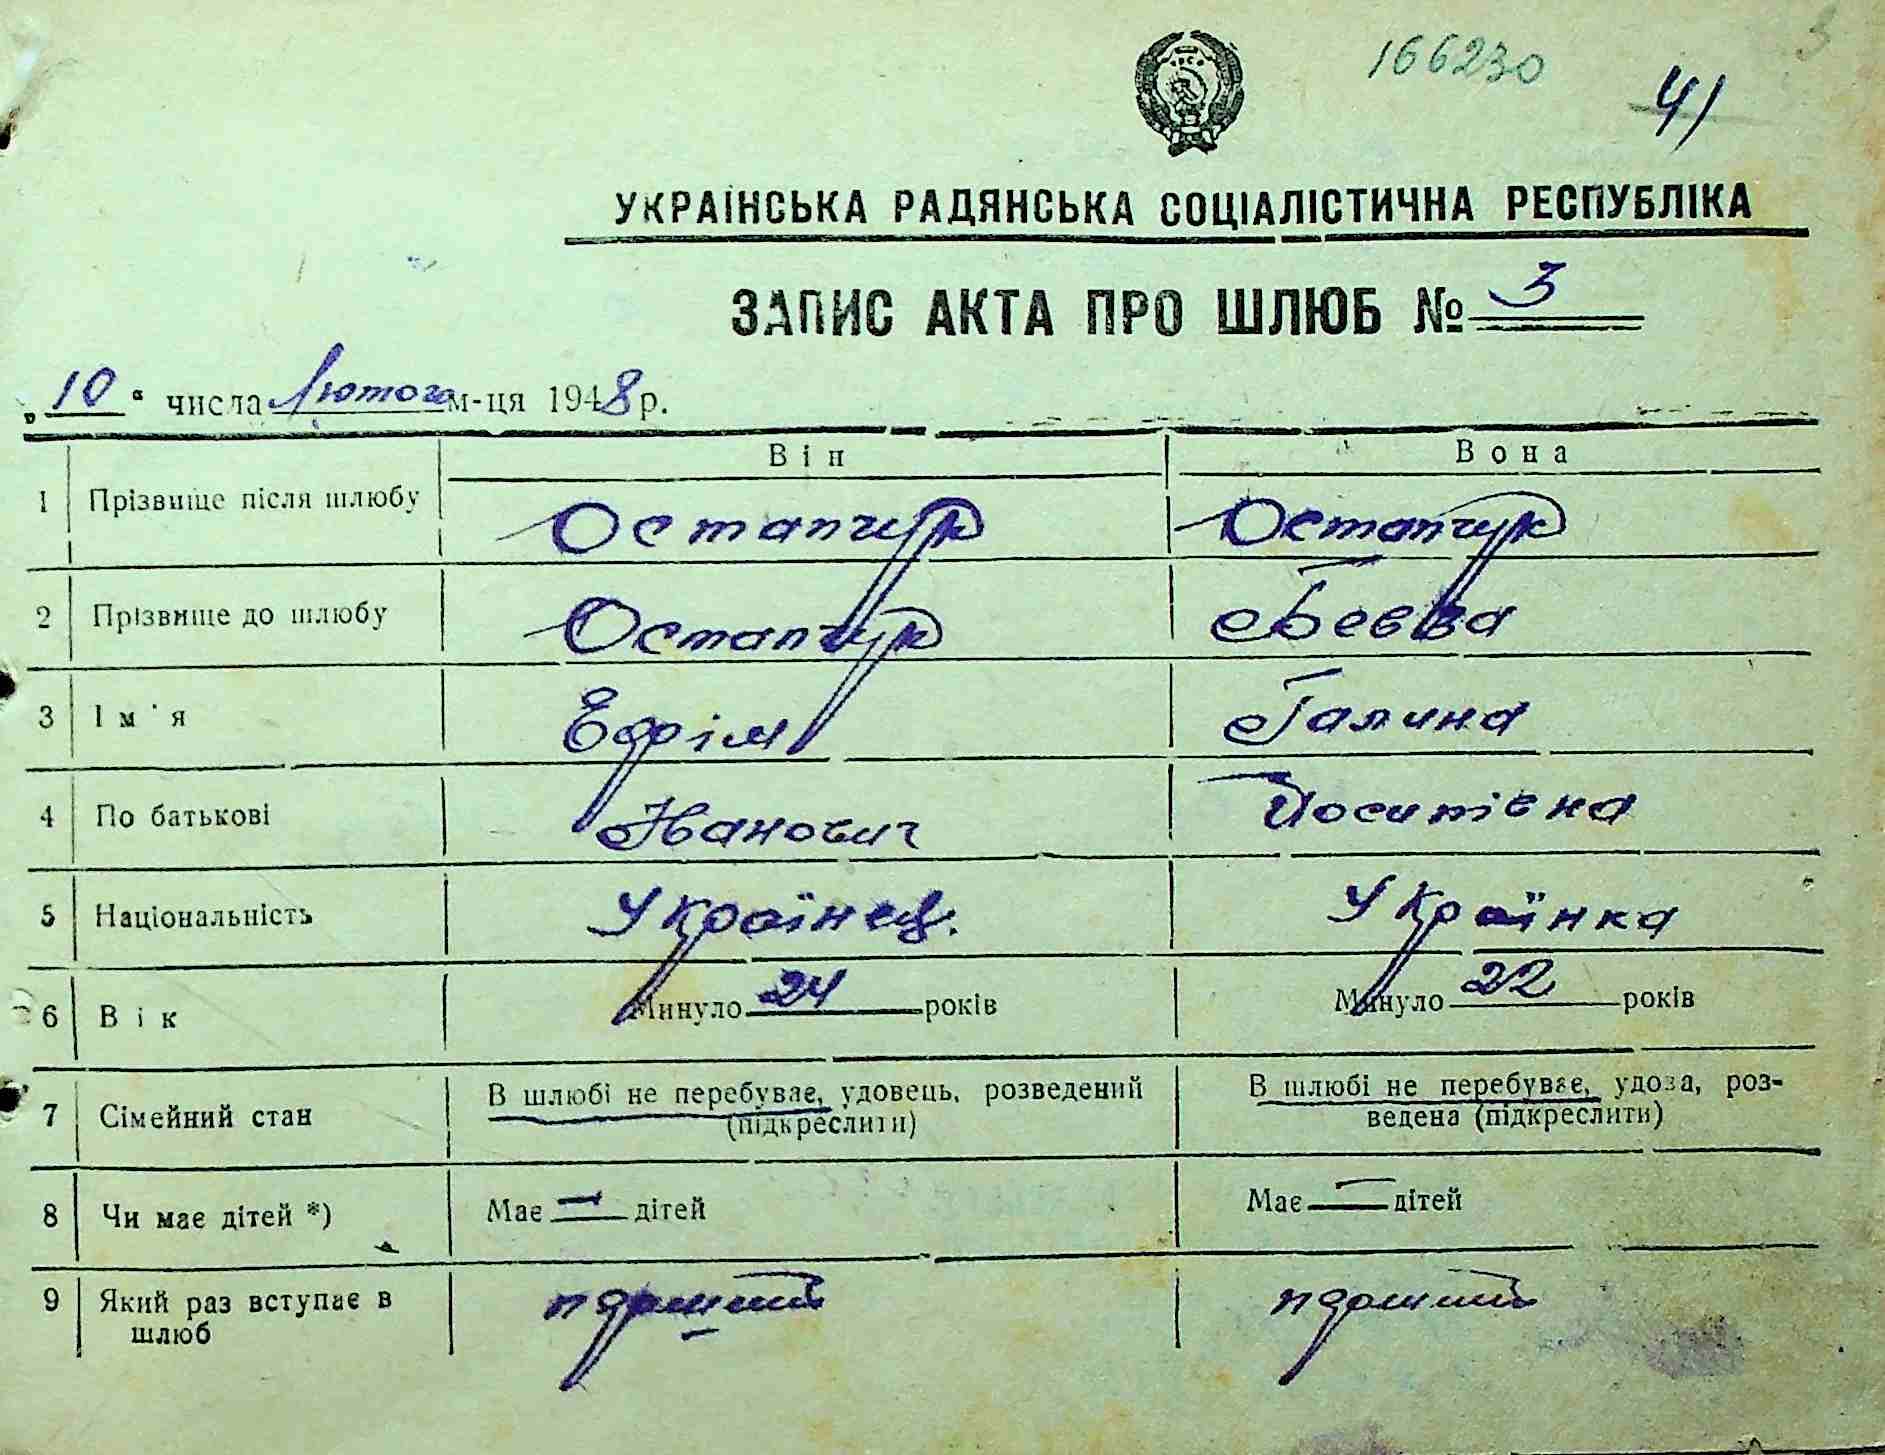 166230
41
УКРАЇНСЬКА РАДЯНСЬКА СОЦІАЛІСТИЧНА РЕСПУБЛІКА
ЗАПИС АКТА ПРО ШЛЮБ № 3
„10“ числа Лютого м-ця 1948 р.
Він Вона
1 Прізвище після шлюбу Остапчук Остапчук
2 Прізвище до шлюбу Остапчук
3 Ім'я Єфрім Галина
4 По батькові Іванович Йосипівна
5 Національність Українец. Українка
6 Вік Минуло 24 років Минуло 22 років
7 Сімейний стан В шлюбі не перебуває, удовець, розведений В шлюбі не перебуває, удова, роз-
(підкреслити) ведена (підкреслити)
8 Чи має дітей *) Має — дітей Має — дітей
9 Який раз вступає в
шлюб